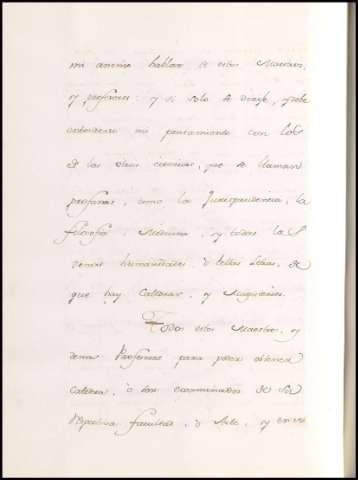 mi animo hablar de estos Maestros,
y profesores: y si solo de
entenderse mi pensamiento con los
de las otras ciencias, que se llaman
profanas, como la Jurisprudencia, la
filosofia, Medicina, y todas la
demas humanidades, o bellas letras, de
que hay Catedras, y Magisterios.
Todos estos Maestros, y
demas Profesores para poder obtener
Catedra, o son examinados de su
respectiva facultad, o Arte, y en